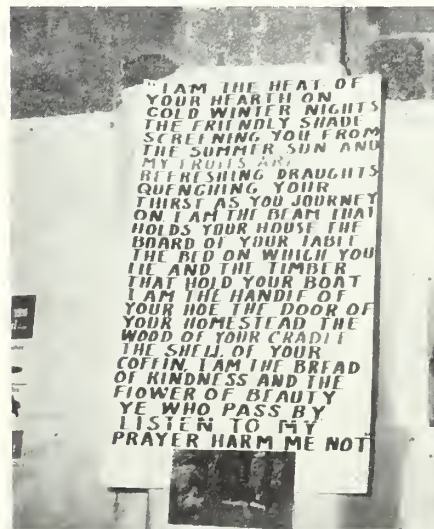 "I AM THE HEAT OF
YOUR HEARTH ON
COLD WINTER NIGHTS
THE FRIENDLY SHADE
SCREENING YOU FROM
THE SUMMER SUN AND
MY FRUITS ARE
REFRESHING DRAUGHTS
QUENCHING YOUR
THIRST AS YOU JOURNEY
ON. I AM THE BEAM THAT
HOLDS YOUR HOUSE THE
BOARD OF YOUR TABLE
THE BED ON WHICH YOU
LIE AND THE TIMBER
THAT HOLD YOUR BOAT
I AM THE HANDLE OF
YOUR HOE THE DOOR OF
YOUR HOMESTEAD THE
WOOD OF YOUR CRADLE
THE SHELL OF YOUR
COFFIN. I AM THE BREAD
OF KINDNESS AND THE
FLOWER OF BEAUTY
YE WHO PASS BY
LISTEN TO MY
PRAYER HARM ME NOT